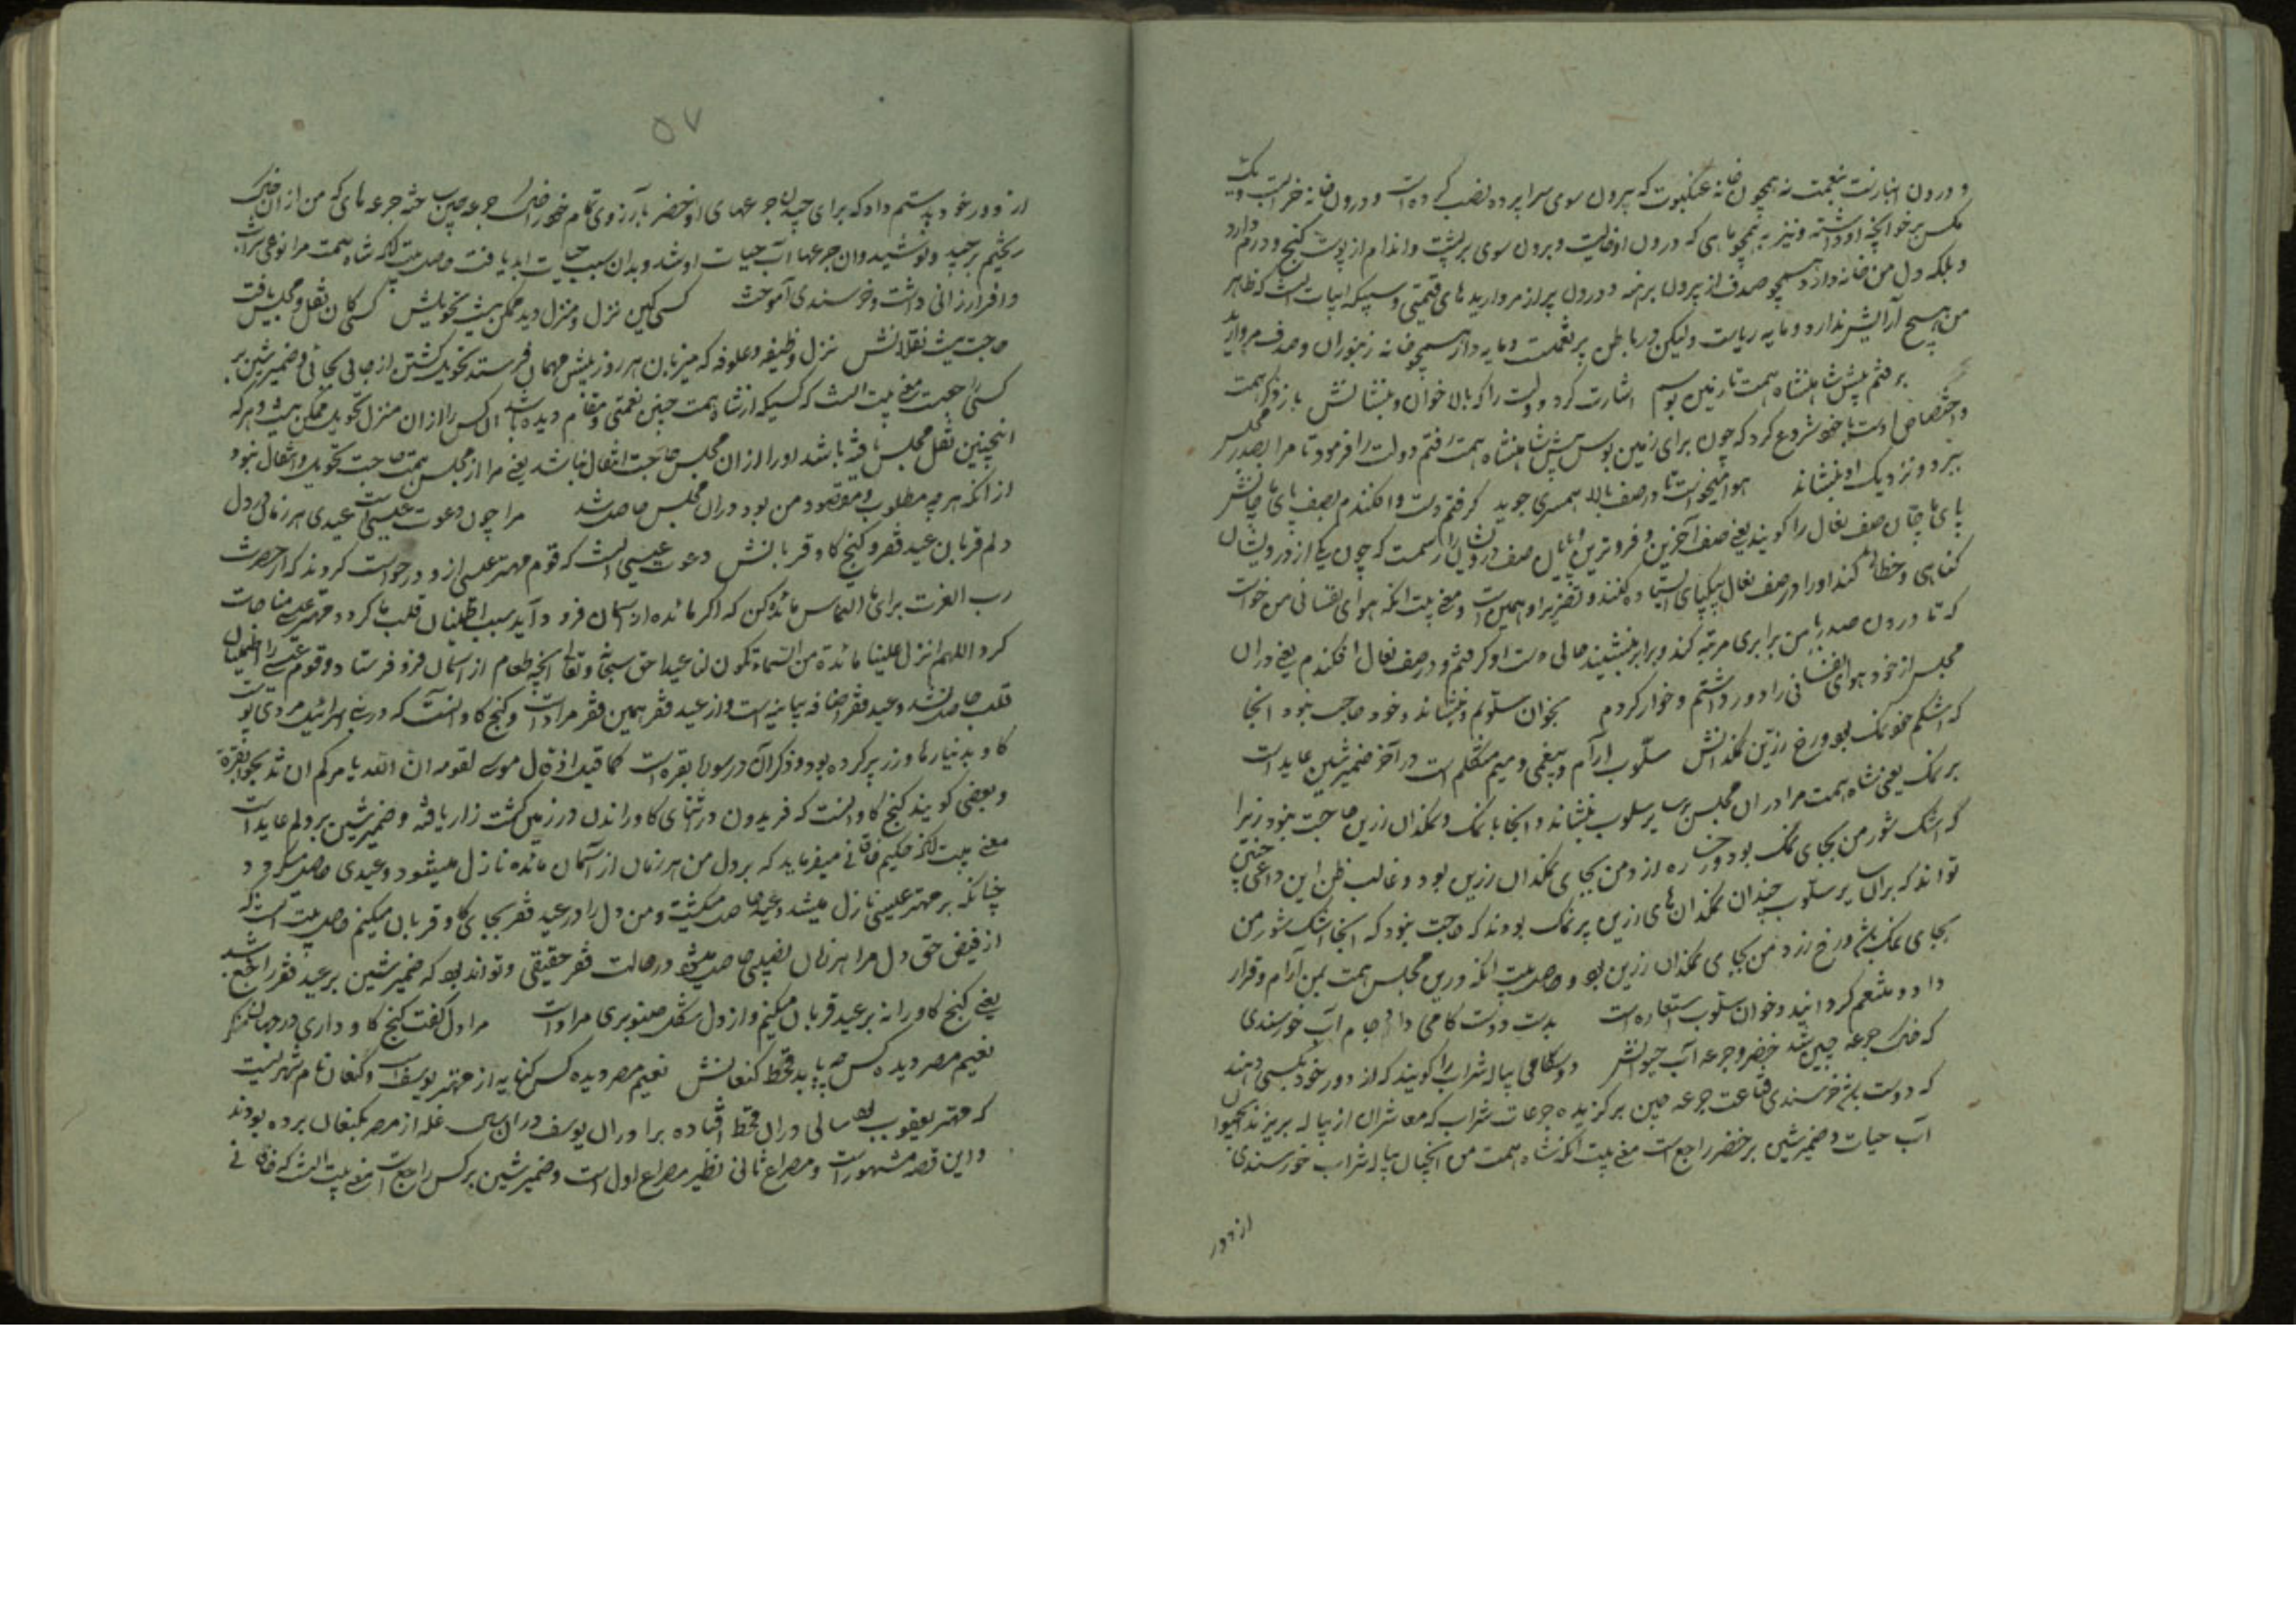 و درون انبارنست بنعمت نه همچون خانه عنکبوت که بیرون سوی سراپرده نصب کرده است و درون خانه خراب است و یک
مکس بر خوانچه او داشته و نیز نه همچو ماهی که درون او خالیست و برون سوی بر پشت و اندام از پوست گنج و درم دارد
و بلکه دل من خانه دارد همچو صدف از بیرون برهنه و درون پر از مرواریدهای قیمتی و سپیکه ابیات است که ظاهر
من هیچ آرایش ندارد و مایه ریاست ولیکن در باطن پر نعمت و مایه دار همچو خانه زنبوران و صدف مروارید
برفتم پیش شاهنشاه همت تا زمین بوسم اشارت کرد دولت را که بالا خوان و بنشانش باز ذکر همت
و اختصاص اوست با خود شروع کرد که چون برای زمین بوس پیش شاهنشاه همت رفتم دولت را فرمود تا مرا بصدر مجلس
ببرد و نزدیک او بنشاند هوا میخواست تا در صف بالا همسری جوید گرفتم دست و افکندم بصف پای ماچانش
پای ماچان صف نعال را گویند یعنی صف آخرین و فروترین و پایان صف درویشان را رسمست که چون یکی از درویشان
گناهی و خطائی کند او را در صف نعال بیکپای ایستاده کنند و تعزیر او همین است و معنی بیت آنکه هوای نفسانی من خواست
که تا درون صدر با من برابری مرتبه کند و برابر بنشیند حالی دست او گرفتم و در صف نعال افکندم یعنی دران
مجلس از خود هوای نفسانی را دور داشتم و خوار کردم بخوان سلوتم بنشاند و خود حاجت نبود آنجا
که اشکم خود نمک بود و رخ زرین نمکدانش سلوت آرام و بیغمی و میم متکلم است در آخر ضمیر شین عاید است
بر نمک یعنی شاه همت مرا دران مجلس بر سر سلوت بنشاند و آنجا با نمک و نمکدان زرین حاجت نبود زیرا
که اشک شور من بجای نمک بود و رخساره زرد من بجای نمکدان زرین بود و غالب ظن این داعی چنین
تواند که بران سر سلوت چندان نمکدان های زرین پر نمک بودند که حاجت نبود که آنجا اشک شور من
بجای نمک باشد و رخ زرد من بجای نمکدان زرین بود و حاصل بیت آنکه درین مجلس همت بمن آرام و قرار
داد و متنعم گردانید و خوان سلوت استعاره است بدست دوست کامی داد جام آب خورسندی
که خاک جرعه چین شد خضر و جرعه آب حیوانش دوستکامی پیاله شراب را گویند که از دور خود بکسی دهند
که دوست باشد خرسندی قناعت جرعه چین برگزیده جرعات شراب که معاشران از پیاله بریزند آب حیوان
آب حیات و ضمیر شین بر خضر راجع است معنی بیت آنکه شاه همت من آنچنان پیاله شراب خورسندی
از دور
۵۷
از دور خود بدستم داد که برای چیدن جرعهای او خضر بآرزوی تمام خود را خاک جرعه چین ساخته جرعه های که من از آن خاک
ریختم برچید و نوشید و آن جرعها آب حیات او شد و بدان سبب حیات ابد یافت حاصل بیت آنکه شاه همت مرا نوعی شراب
وافر ارزانی داشت و خرسندی آموخت کسی کین نزل و منزل دید ممکن نیست تحویلش کسی کان نقل و مجلس یافت
حاجت نیست نقلانش نزل وظیفه و علوفه که میزبان هر روز پیش مهمان فرستد تحویل گشتن از جائی بجائی و ضمیر شین بر
کسی راجعست معنی بیت آنست که کسیکه از شاه همت چنین نعمتی و مقام دیده باشد آن کس را از آن منزل تحویل ممکن نیست و هر که
اینچنین نقل مجلس یافته باشد او را از آن مجلس حاجت انتقال نباشد یعنی مرا از مجلس همت حاجت تحویل و انتقال نبود
از آنکه هر چه مطلوب و مقصود من بود دران مجلس حاصل شد مرا چون دعوت عیسی است عیدی هر زمان در دل
دلم قربان عید فقر و گنج گاو قربانش دعوت عیسی آنست که قوم مهتر عیسی از و درخواست کردند که از حضرت
رب العزت برای ما التماس مائده کن که اگر مائده از آسمان فرود آید سبب اطمینان قلب ما گردد مهتر عیسی مناجات
کرد اللهم انزل علینا مائدة من السماء تکون لنا عیدا حق سبحانه و تعالی آنچه طعام از آسمان فرو فرستاد و قوم عیسی را اطمینان
قلب حاصل شد و عید فقر اضافه بیانیه است و از عید فقر همین فقر مراد است و گنج گاو آنست که در بنی اسرائیل مردی پوست
گاو بدنیارها و زر پر کرده بود و ذکر آن در سوره بقره است کما قیل اذ قال موسی لقومه ان الله یامرکم ان تذبحوا بقرة
و بعضی گویند گنج گاو آنست که فریدون در اثنای گاو راندن در زمین کشت زار یافته و ضمیر شین بر دلم عاید است
معنی بیت آنکه حکیم خاقانی میفرماید که بر دل من هر زمان از آسمان مائده نازل میشود و عیدی حاصل میگردد
چنانکه بر مهتر عیسی نازل میشد و عید حاصل میگشت و من دل را در عید فقر بجای گاو قربان میکنم حاصل بیت آنست که
از فیض حق دل مرا هر زمان نصیبی حاصل میشود در حالت فقر حقیقی و تواند بود که ضمیر شین بر عید فقر راجع باشد
یعنی گنج گاو را نه بر عید قربان میکنم و از دل شکل صنوبری مراد است مرا دل گفت گنج گاو داری در جهان بنگر
نعیم مصر دیده کس چه باید قحط کنعانش نعیم مصر دیده کس کنایه از مهتر یوسف است و کنعان نام شهریست
که مهتر یعقوب بود سالی دران قحط افتاده برادران یوسف دران سال غله از مصر بکنعان برده بودند
و این قصه مشهور است و مصراع ثانی نظیر مصراع اول است و ضمیر شین بر کس راجع است معنی بیت آنست که خاقانی